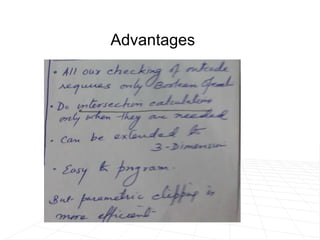 Advantages
• All our checking of outcode
requires only Boolean
• Do intersection calculations
only when they are needed
• Can be extended to
3-Dimension
• Easy to program.
But parametric clipping is
more efficient